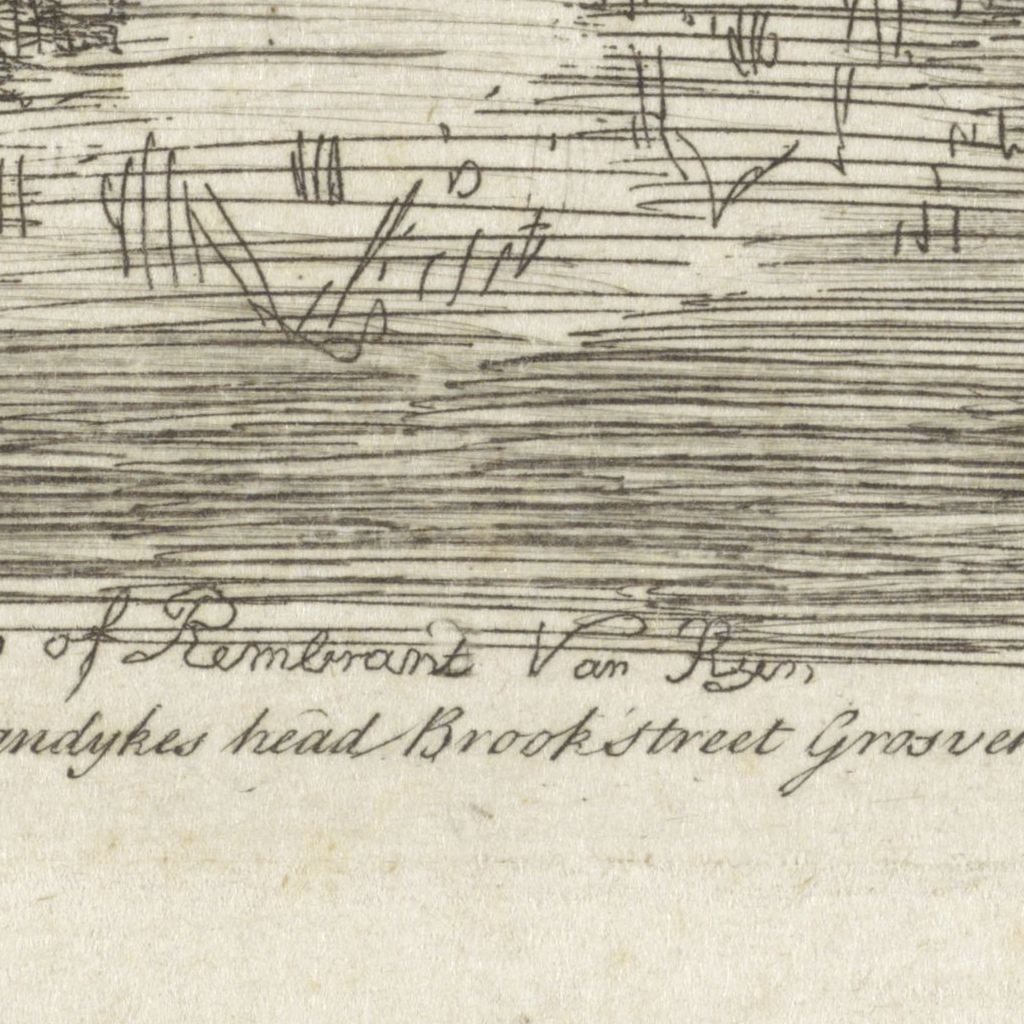 of Rembrant Van Ryn
andykes head Brook street Grosven